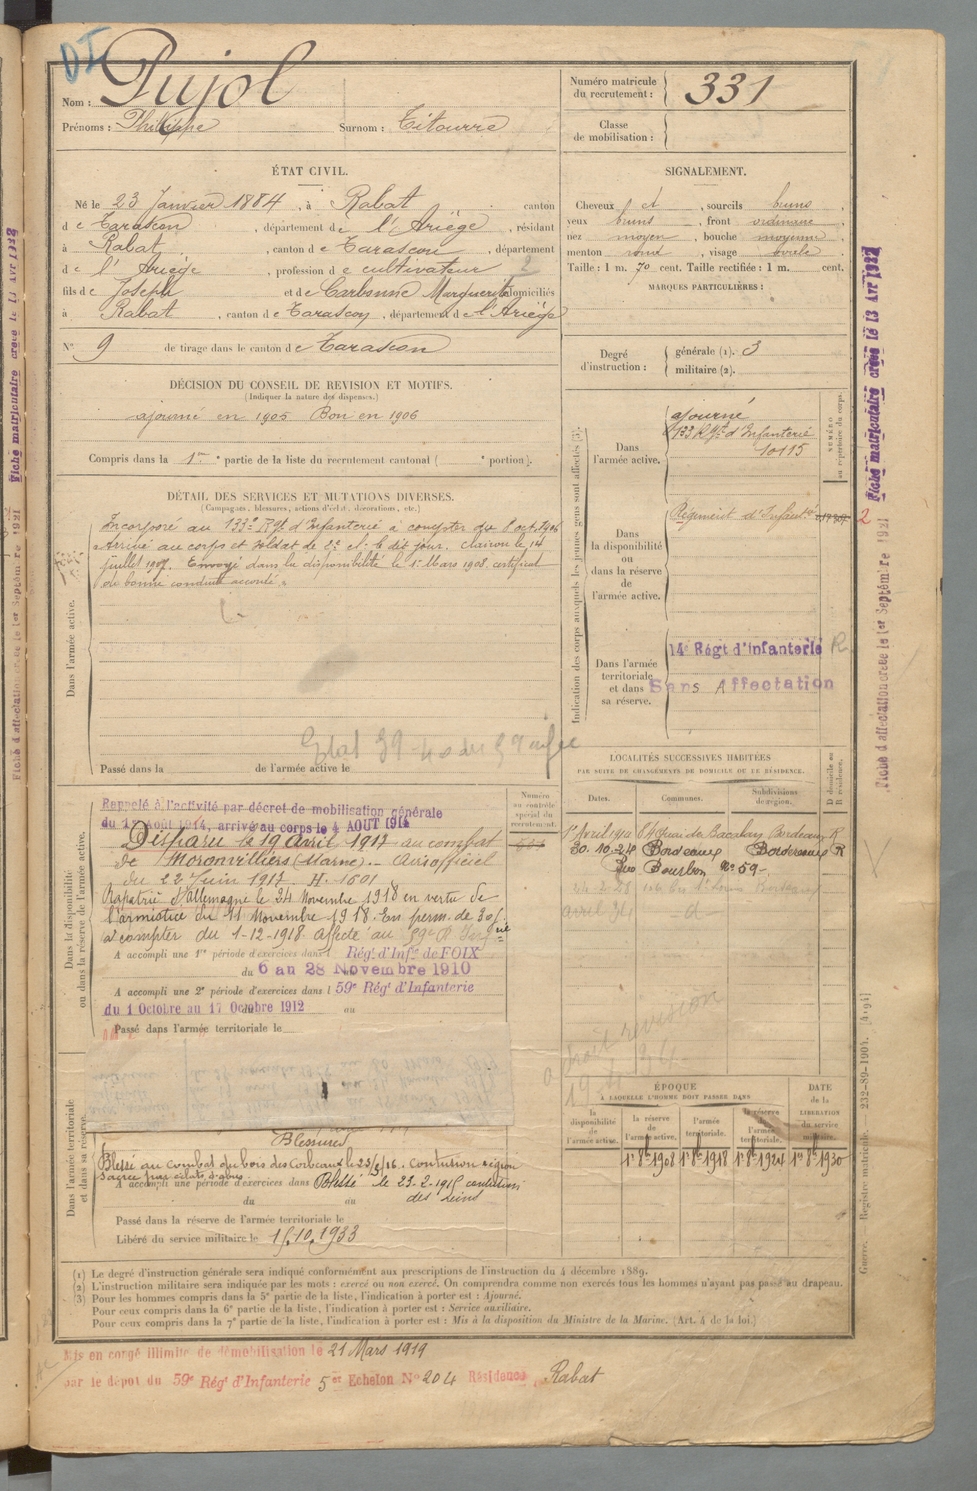 DI
Nom : Pujol
Prénoms : Philippe Surnom : Titourre
Numéro matricule du recrutement : 331
Classe de mobilisation :
ÉTAT CIVIL.
Né le 23 Janvier 1884, à Rabat canton
de Tarascon, département de l'Ariège, résidant
à Rabat, canton de Tarascon, département
de l'Ariège, profession de cultivateur
fils de Joseph et de Carbonne Marguerite domiciliés
à Rabat, canton de Tarascon, département de l'Ariège
N° 9 de tirage dans le canton de Tarascon
SIGNALEMENT.
Cheveux et, sourcils bruns,
yeux bruns, front ordinaire
nez moyen, bouche moyenne,
menton rond, visage ovale
Taille : 1 m. 70 cent. Taille rectifiée : 1 m. cent.
MARQUES PARTICULIÈRES :
Degré d'instruction :
générale (1). 3
militaire (2).
DÉCISION DU CONSEIL DE REVISION ET MOTIFS.
(Indiquer la nature des dispenses.)
ajourné en 1905 Bon en 1906
Compris dans la 1re partie de la liste du recrutement cantonal ( portion).
DÉTAIL DES SERVICES ET MUTATIONS DIVERSES.
(Campagnes, blessures, actions d'éclat, décorations, etc.)
Dans l'armée active.
Incorporé au 133e Rgt d'Infanterie à compter du 8 oct. 1906
Arrivé au corps et soldat de 2e cl. le dit jour. Clairon le 14
juillet 1907. Envoyé dans la disponibilité le 1er Mars 1908. certificat
de bonne conduite accordé.
Passé dans la de l'armée active le
Indication des corps auxquels les jeunes gens sont affectés (3).
NUMÉRO au répertoire du corps.
Dans l'armée active.
ajourné
133 Rgt d'Infanterie
10115
Dans la disponibilité ou dans la réserve de l'armée active.
Régiment d'Infanterie
2
Dans l'armée territoriale et dans sa réserve.
14e Régt d'Infanterie R
Sans Affectation
Dans la disponibilité ou dans la réserve de l'armée active.
Numéro au contrôle spécial du recrutement.
Rappelé à l'activité par décret de mobilisation générale
du 1er Août 1914, arrivé au corps le 4 AOUT 1914
Disparu le 19 Avril 1917 au combat
de Moronvilliers (Marne). Avis officiel
du 22 Juin 1917. H. 1601
Rapatrié d'Allemagne le 24 Novembre 1918 en vertu de
l'armistice du 11 Novembre 1918. En perm. de 30 j.
à compter du 1-12-1918 affecté au 59e R.
A accompli une 1re période d'exercices dans l Régt d'Infie de FOIX
du 6 au 28 Novembre 1910
A accompli une 2e période d'exercices dans l 59e Régt d'Infanterie
du 1 Octobre au 17 Octobre 1912
Passé dans l'armée territoriale le
LOCALITÉS SUCCESSIVES HABITÉES
PAR SUITE DE CHANGEMENTS DE DOMICILE OU DE RÉSIDENCE.
Dates. Communes. Subdivisions de région. D domicile ou R résidence.
1er Avril 1914 84 Quai de Bacalan Bordeaux R
30.10.24 Bordeaux Bordeaux R
Rue Bourbon No 59
avril 34 -d-
droit revision
ÉPOQUE
À LAQUELLE L'HOMME DOIT PASSER DANS
DATE de la LIBÉRATION du service militaire.
la disponibilité de l'armée active. la réserve de l'armée active. l'armée territoriale. la réserve de l'armée territoriale.
1er 8bre 1908 1er 8bre 1918 1er 8bre 1924 1er 8bre 1930
Dans l'armée territoriale et dans sa réserve.
Blessures
Blessé au combat du bois des Corbeaux le 23/5/16. Contusion région
sacrée par éclats d'obus.
A accompli une période d'exercices dans Blessé le 23-2-1915 contusion
des reins
du au
Passé dans la réserve de l'armée territoriale le
Libéré du service militaire le 15.10.1933
(1) Le degré d'instruction générale sera indiqué conformément aux prescriptions de l'instruction du 4 décembre 1889.
(2) L'instruction militaire sera indiquée par les mots : exercé ou non exercé. On comprendra comme non exercés tous les hommes n'ayant pas passé au drapeau.
(3) Pour les hommes compris dans la 5e partie de la liste, l'indication à porter est : Ajourné.
Pour ceux compris dans la 6e partie de la liste, l'indication à porter est : Service auxiliaire.
Pour ceux compris dans la 7e partie de la liste, l'indication à porter est : Mis à la disposition du Ministre de la Marine. (Art. 4 de la loi.)
Mis en congé illimité de démobilisation le 21 Mars 1919
par le dépôt du 59e Régt d'Infanterie 5e Echelon No 204 Résidence, Rabat
Fiche matriculaire créée le 13 Avr 1932
Fiche d'affectation créée le 1er Septembre 1921
Guerre. — Registre matricule. — 232-89-1904. [4194]
Fiche matriculaire créée le
Fiche d'affectation créée le 1er Septembre 1921